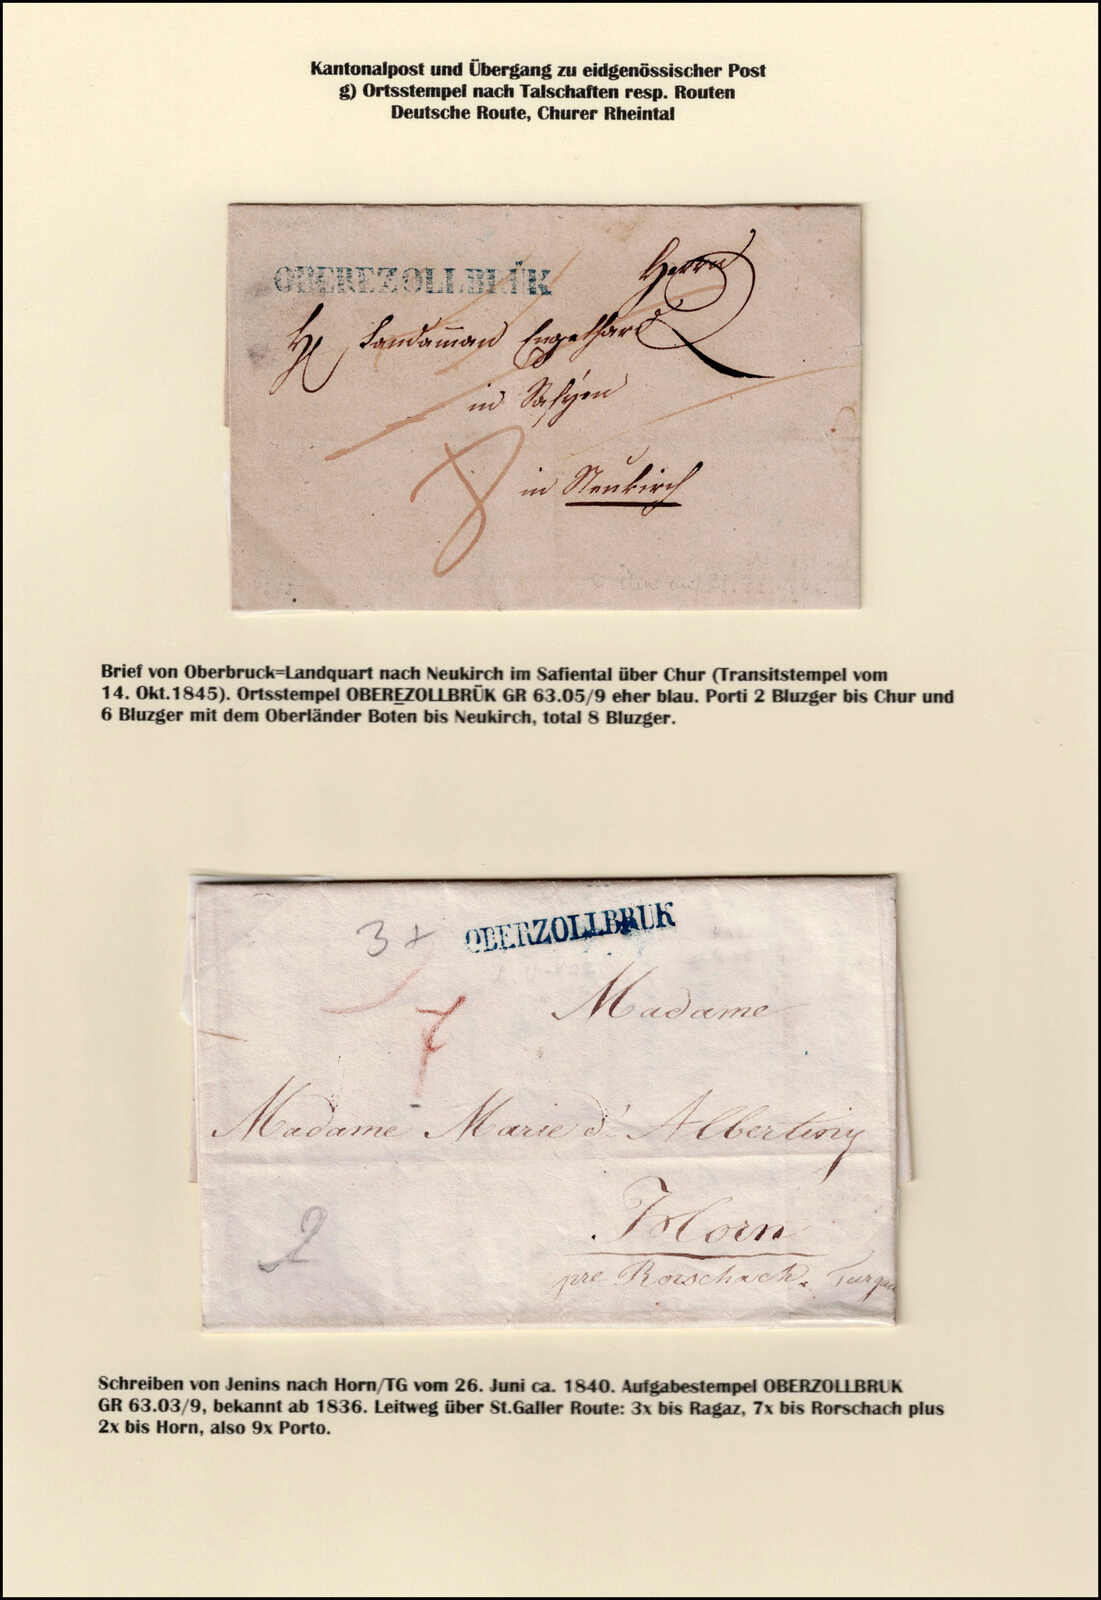 Kantonalpost und Übergang zu eidgenössischer Post
g) Ortsstempel nach Talschaften resp. Routen
Deutsche Route, Churer Rheintal
OBEREZOLLBLÜK
Herrn
Landamman Engelhard
in Safyen
8
in Neukirch
Brief von Oberbruck=Landquart nach Neukirch im Safiental über Chur (Transitstempel vom
14. Okt.1845). Ortsstempel OBEREZOLLBRÜK GR 63.05/9 eher blau. Porti 2 Bluzger bis Chur und
6 Bluzger mit dem Oberländer Boten bis Neukirch, total 8 Bluzger.
3x
OBERZOLLBRUK
Madame
7
Madame Marie d'Albertiny
Horn
2
pre Rorschach
Schreiben von Jenins nach Horn/TG vom 26. Juni ca. 1840. Aufgabestempel OBERZOLLBRUK
GR 63.03/9, bekannt ab 1836. Leitweg über St.Galler Route: 3x bis Ragaz, 7x bis Rorschach plus
2x bis Horn, also 9x Porto.